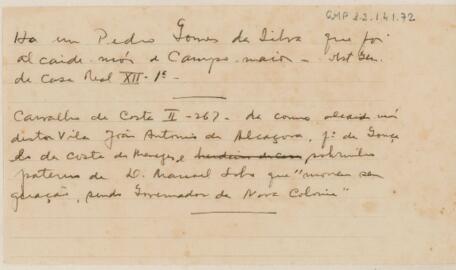 GMP 2.2.1.41.72
Ha um Pedro Gomes da Silva que foi
alcaide mór de Campo maior - Hist Gen.
de Casa Real XII - 1º -
Carvalho da Costa II - 267 - da como alcaide mór
desta Vila João Antonio de Alcaçova, fº de Gonça
lo da Costa de Menezes, e sobrinho
paterno de D. Manuel Lobo que "morreu sem
geração, sendo Governador da Nova Colonia"